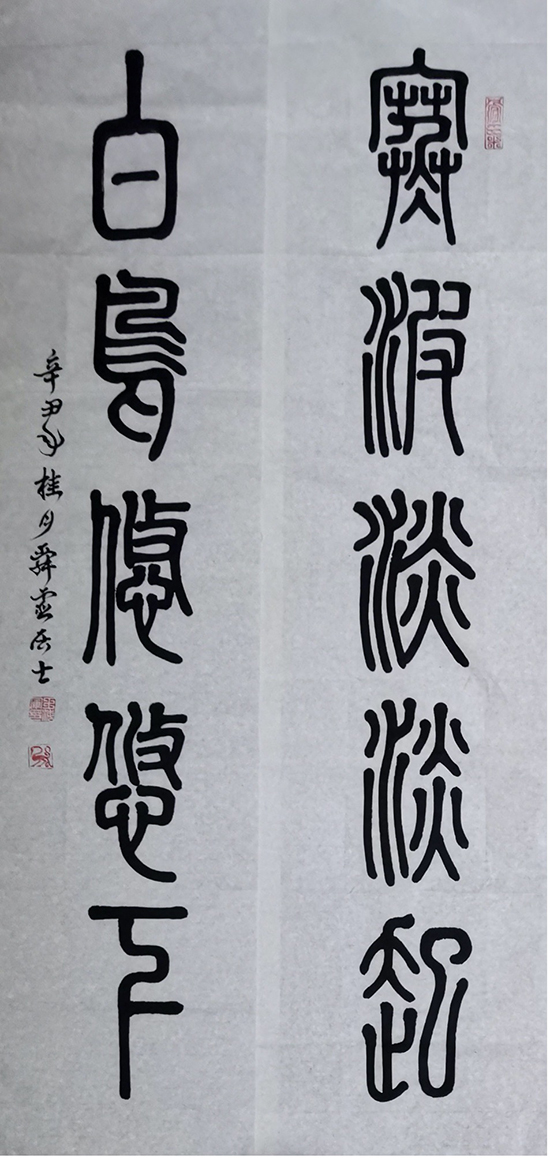 寒波淡淡起
白鳥悠悠下
辛丑年桂月舜居士